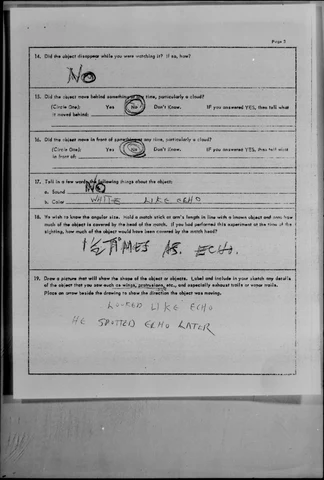 Page 5
14. Did the object disappear while you were watching it? If so, how?
No
15. Did the object move behind something at any time, particularly a cloud?
(Circle One): Yes No Don't Know. IF you answered YES, then tell what
it moved behind:
16. Did the object move in front of something at any time, particularly a cloud?
(Circle One): Yes No Don't Know. IF you answered YES, then tell what
in front of:
17. Tell in a few words the following things about the object:
a. Sound NO
b. Color WHITE LIKE ECHO
18. We wish to know the angular size. Hold a match stick at arm's length in line with a known object and note how
much of the object is covered by the head of the match. If you had performed this experiment at the time of the
sighting, how much of the object would have been covered by the match head?
1½ TIMES ECH.
19. Draw a picture that will show the shape of the object or objects. Label and include in your sketch any details
of the object that you saw such as wings, protrusions, etc., and especially exhaust trails or vapor trails.
Place an arrow beside the drawing to show the direction the object was moving.
LOOKED LIKE ECHO
HE SPOTTED ECHO LATER